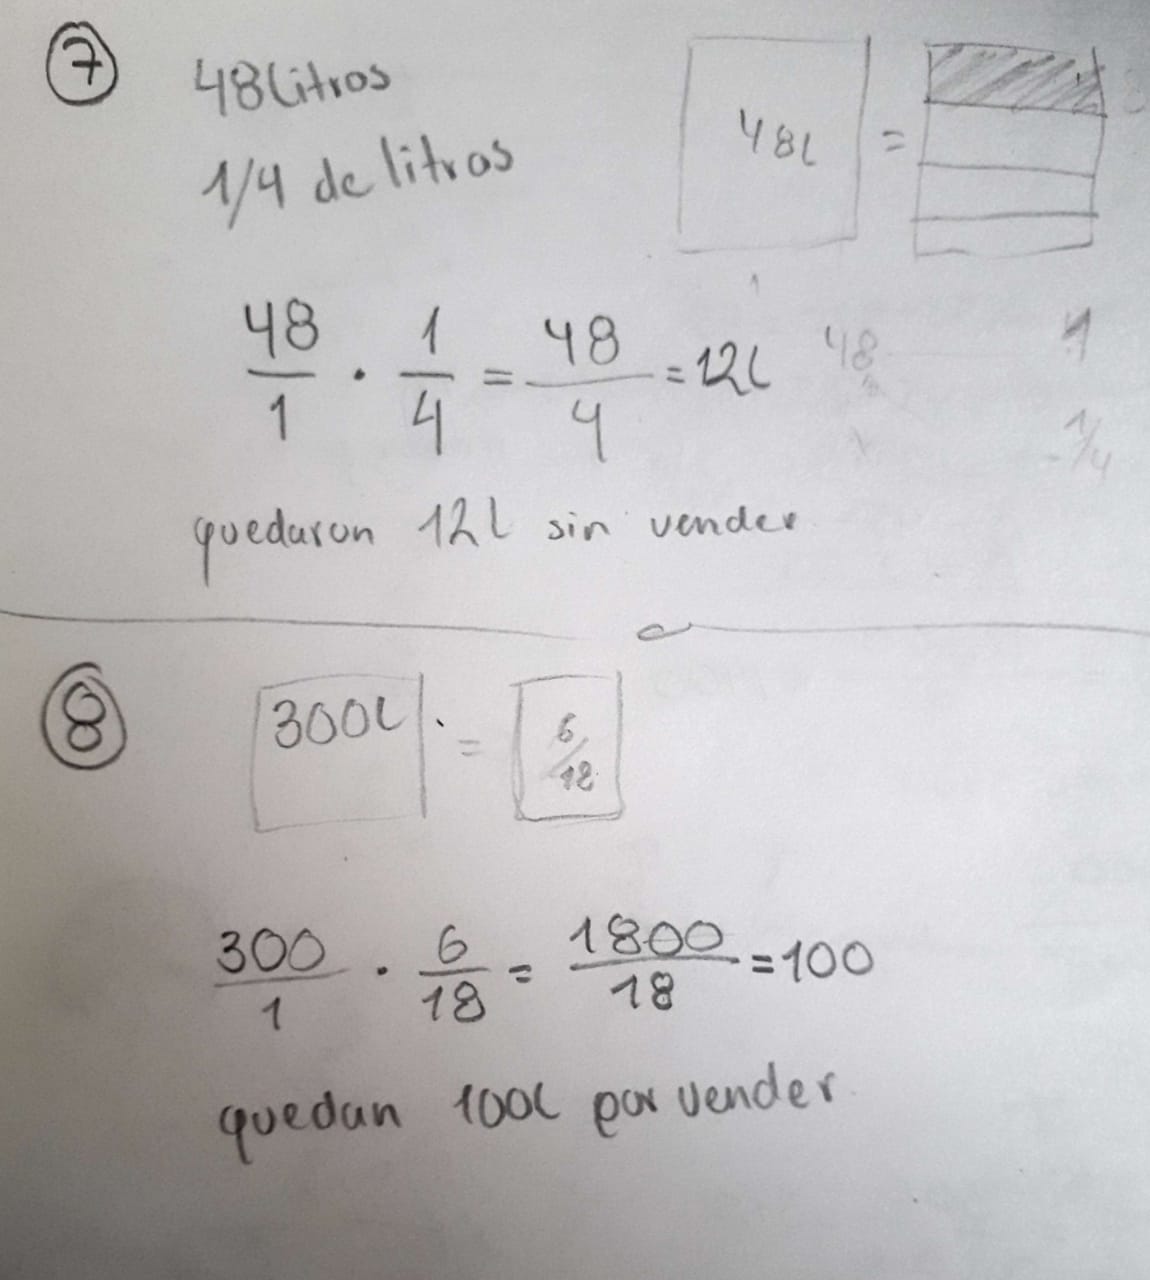 7
48 litros
1/4 de litros
48L =
48/1 · 1/4 = 48/4 = 12L
48
1
1/4
quedaron 12L sin vender
8
300L · = 6/18
300/1 · 6/18 = 1800/18 = 100
quedan 100L por vender.